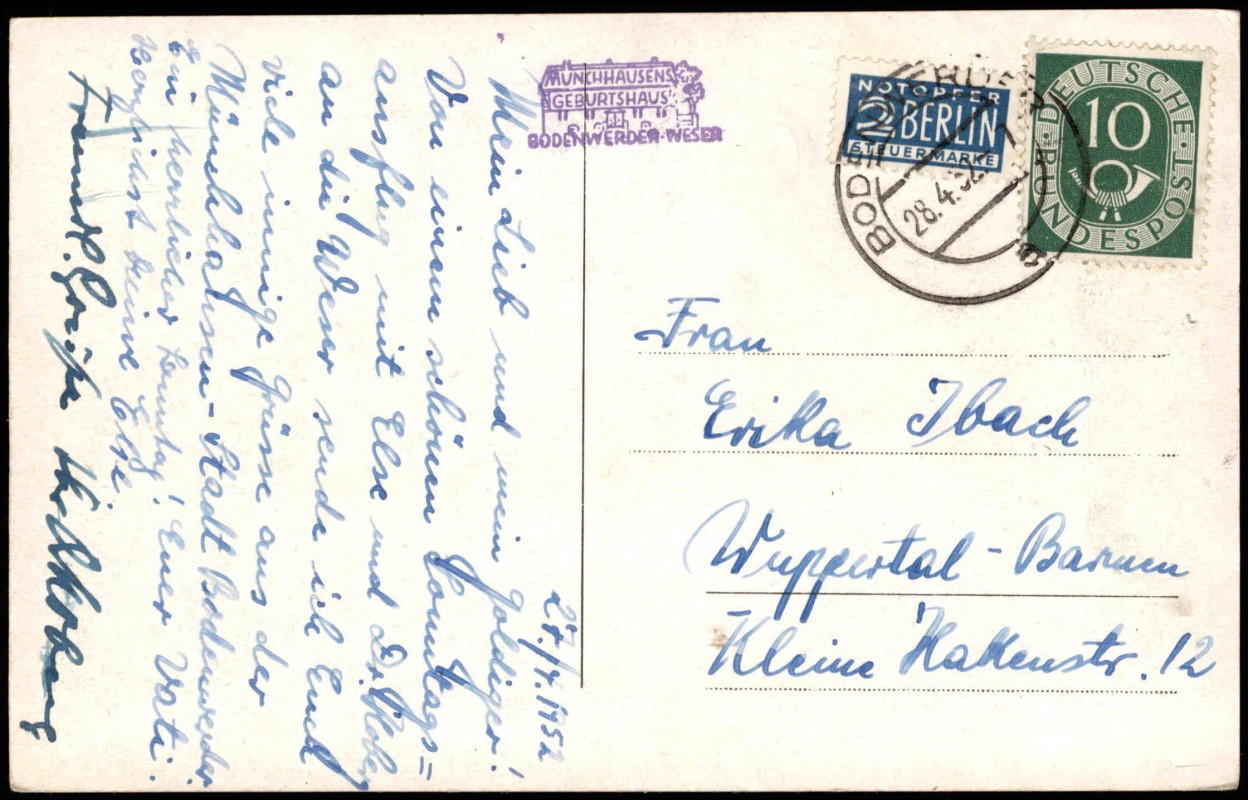 27./4.1952
Mein Lieb und mein Goldiger!
Von einem schönen Sonntags=
ausflug mit Else und Dr. Koberg
an die Weser sende ich Euch
viele innige Grüsse aus der
Münchhausen-Stadt Bodenwerder.
Ein herrlicher Sonntag! Euer Vati.
Herzlichst Deine Else.
Freundl. Grüße
MÜNCHHAUSENS
GEBURTSHAUS
BODENWERDER-WESER
NOTOPFER
2 BERLIN
STEUERMARKE
28.4.52
a
DEUTSCHE
10
BUNDESPOST
Frau
Erika Ibach
Wuppertal-Barmen
Kleine Hakenstr. 12